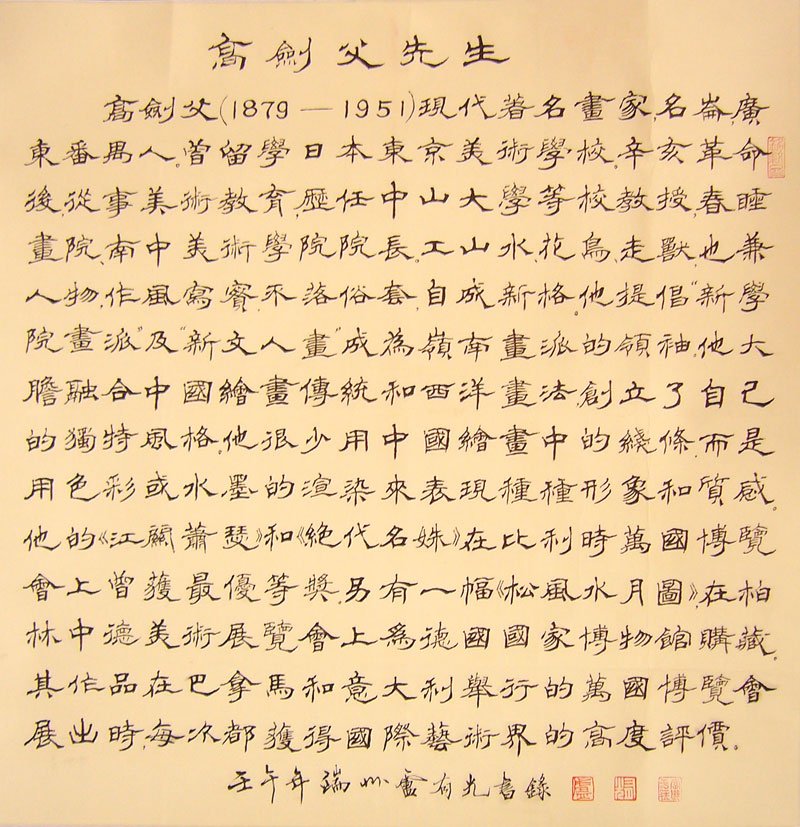 高劍父先生
高劍父(1879—1951)現代著名畫家,名崙,廣
東番禺人。曾留學日本東京美術學校。辛亥革命
後,從事美術教育,歷任中山大學等校教授,春睡
畫院、南中美術學院院長。工山水、花鳥、走獸,也兼
人物,作風寫實,不落俗套,自成新格。他提倡“新學
院畫派”及“新文人畫”成為嶺南畫派的領袖。他大
膽融合中國繪畫傳統和西洋畫法,創立了自己
的獨特風格。他很少用中國繪畫中的綫條,而是
用色彩或水墨的渲染來表現種種形象和質感。
他的《江關蕭瑟》和《絕代名姝》在比利時萬國博覽
會上曾獲最優等獎,另有一幅《松風水月圖》,在柏
林中德美術展覽會上為德國國家博物館購藏。
其作品在巴拿馬和意大利舉行的萬國博覽會
展出時,每次都獲得國際藝術界的高度評價。
壬午年端州盧有光書錄